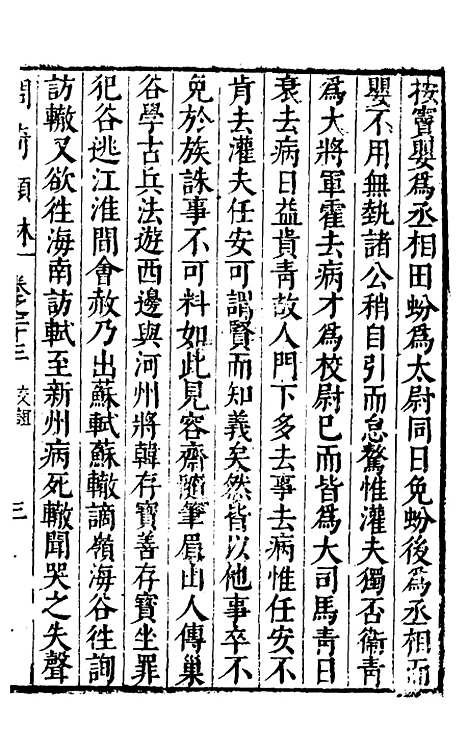 按竇嬰爲丞相田蚡爲太尉同日免蚡後爲丞相而
嬰不用無埶諸公稍自引而怠驁惟灌夫獨否衞靑
爲大將軍霍去病才爲校尉已而皆爲大司馬靑日
衰去病日益貴靑故人門下多去事去病惟任安不
肯去灌夫任安可謂賢而知義矣然皆以他事卒不
免於族誅事不可料如此見容齋隨筆眉山人傳巢
谷學古兵法遊西邊與河州將韓存寶善存寶坐罪
犯谷逃江淮間會赦乃出蘇軾蘇轍謫嶺海谷徃詢
訪轍又欲徃海南訪軾至新州病死轍聞哭之失聲
卷之三 交誼 三